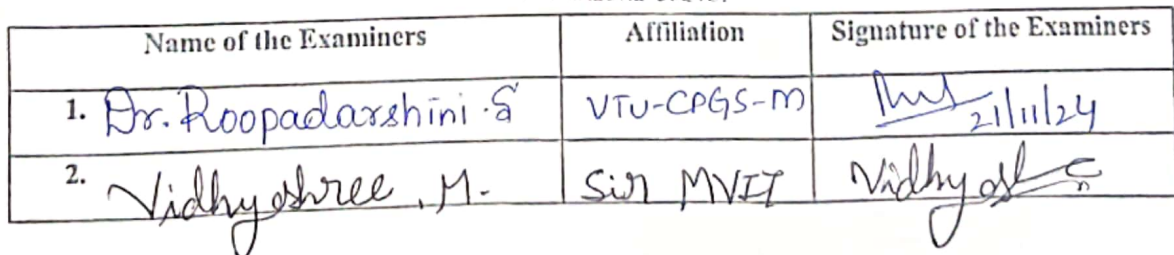 Name of the Examiners Affiliation Signature of the Examiners
1. Dr. Roopadarshini .S VTU-CPGS-M 21/11/24
2. Vidhyashree . M. Sir MVIT